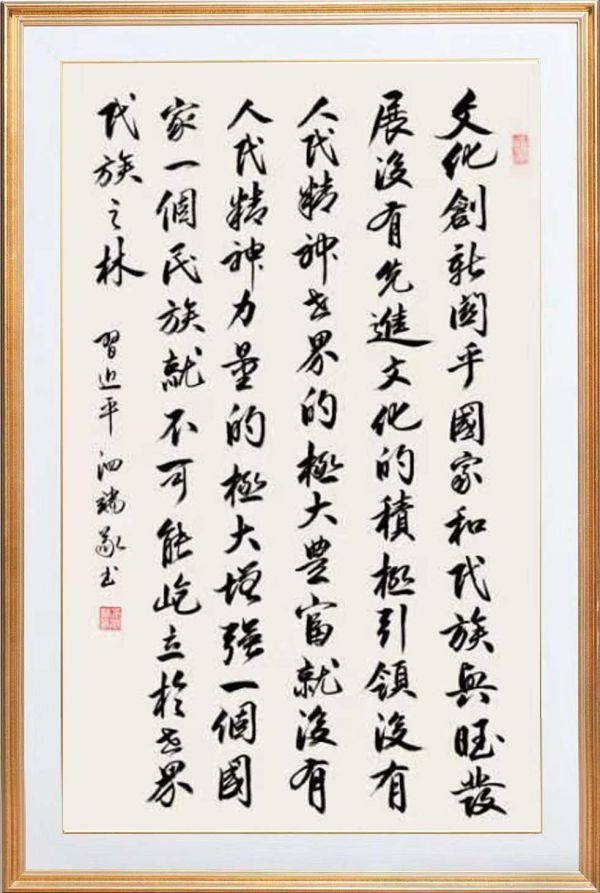 文化創新關乎國家和民族興旺發
展沒有先進文化的積極引領沒有
人民精神世界的極大豐富就沒有
人民精神力量的極大增強一個國
家一個民族就不可能屹立於世界
民族之林 習近平 泗端 书